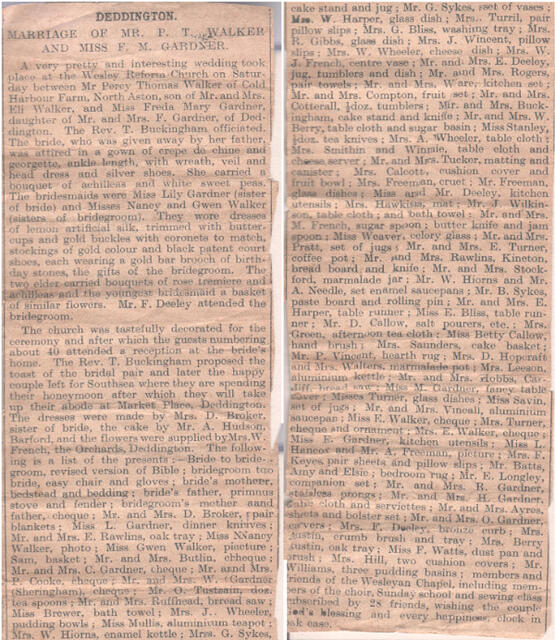 DEDDINGTON.
MARRIAGE OF MR. P. T. WALKER
AND MISS F. M. GARDNER.
A very pretty and interesting wedding took
place at the Wesley Reform Church on Satur-
day between Mr Percy Thomas Walker of Cold
Harbour Farm, North Aston, son of Mr. and Mrs.
Eli Walker, and Miss Freda Mary Gardner,
daughter of Mr. and Mrs. F. Gardner, of Ded-
dington. The Rev. T. Buckingham officiated.
The bride, who was given away by her father,
was attired in a gown of crepe de chine and
georgette, ankle length, with wreath, veil and
head dress and silver shoes. She carried a
bouquet of achilleas and white sweet peas.
The bridesmaids were Miss Lily Gardner (sister
of bride) and Misses Nancy and Gwen Walker
(sisters of bridegroom). They wore dresses
of lemon artificial silk, trimmed with butter-
cups and gold buckles with coronets to match,
stockings of gold colour and black patent court
shoes, each wearing a gold bar brooch of birth-
day stones, the gifts of the bridegroom. The
two elder carried bouquets of rose tremiere and
achilleas and the youngest bridesmaid a basket
of similar flowers. Mr. F. Deeley attended the
bridegroom.
The church was tastefully decorated for the
ceremony and after which the guests numbering
about 40 attended a reception at the bride's
home. The Rev. T. Buckingham proposed the
toast of the bridal pair and later the happy
couple left for Southsea where they are spending
their honeymoon after which they will take
up their abode at Market Place, Deddington.
The dresses were made by Mrs. D. Broker,
sister of bride, the cake by Mr. A. Hudson,
Barford, and the flowers were supplied by Mrs. W.
French, the Orchards, Deddington. The follow-
ing is a list of the presents :— Bride to bride-
groom, revised version of Bible ; bridegroom too
bride, easy chair and gloves ; bride's mother,
bedstead and bedding ; bride's father, primus
stove and fender ; bridegroom's mother and
father, cheque ; Mr. and Mrs. D. Broker, 1 pair
blankets ; Miss L. Gardner, dinner knives ;
Mr. and Mrs. E. Rawlins, oak tray ; Miss NNancy
Walker, photo ; Miss Gwen Walker, picture ;
Sam, basket ; Mr. and Mrs. Butlin, chheque
Mr. and Mrs. C. Gardner, cheque ; Mr. and Mrs.
P. Cooke, cheque ; Mr. and Mrs. W. Gardner
(Sheringham), cheque ; Mr. O. Tustain, doz.
tea spoons ; Mr. and Mrs. Ruffhead, bread saw ;
Miss Brewer, bath towel ; Mrs. J. Wheeler,
pudding bowls ; Miss Mullis, aluminium teapot ;
Mrs. W. Hiorns, enamel kettle ; Mrs. G. Sykes,
cake stand and jug ; Mr. G. Sykes, set of vases ;
Mrs. W. Harper, glass dish ; Mrs. Turril, pair
pillow slips ; Mrs. G. Bliss, washing tray ; Mrs.
R. Gibbs, glass dish ; Mrs. J. Wincent, pillow
slips ; Mrs. W. Wheeler, cheese dish ; Mrs. W.
J. French, centre vase ; Mr. and Mrs. E. Deeley,
jug, tumblers and dish ; Mr. and Mrs. Rogers,
pair towels ; Mr. and Mrs. Ware, kitchen set ;
Mr. and Mrs. Compton, fruit set ; Mr. and Mrs.
Cotterall, ½doz. tumblers ; Mr. and Mrs. Buck-
ingham, cake stand and knife ; Mr. and Mrs. W.
Berry, table cloth and sugar basin ; Miss Stanley,
½doz. tea knives ; Mrs. A. Wheeler, table cloth ;
Mrs. Smithin and Winnie, table cloth and
cheese server ; Mr. and Mrs. Tucker, matting and
canister ; Mrs. Calcott, cushion cover and
fruit bowl ; Mrs. Freeman, cruet ; Mr. Freeman,
glass dishes ; Miss and Mr. Deeley, kitchen
utensils ; Mrs. Hawkins, mat ; Mr. J. Wilkin-
son, table cloth ; and bath towel ; Mr. and Mrs.
M. French, sugar spoon ; butter knife and jam
spoon ; Miss Weaver, celery glass ; Mr. and Mrs.
Pratt, set of jugs ; Mr. and Mrs. E. Turner,
coffee pot ; Mr. and Mrs. Rawlins, Kineton,
bread board and knife ; Mr. and Mrs. Stock-
ford, marmalade jar ; Mr. W. Hiorns and Mr.
A. Needle, set enamel saucepans ; Mr. B. Sykes,
paste board and rolling pin ; Mr. and Mrs. E.
Harper, table runner ; Miss E. Bliss, table run-
ner ; Mr. D. Callow, salt pourers, etc. ; Mrs.
Green, afternoon tea cloth ; Miss Betty Callow,
hand brush ; Mrs. Saunders, cake basket ;
Mr. P. Vincent, hearth rug ; Mrs. D. Hopcraft
and Mrs. Walters, marmalade pot ; Mrs. Leeson,
aluminium kettle ; Mr. and Mrs. Hobbs, Car-
diff, bread ; Miss M. Gardner, fancy table
cover ; Misses Turner, glass dishes ; Miss Savin,
set of jugs ; Mr. and Mrs. Vincall, aluminium
saucepan ; Miss E. Walker, cheque ; Mrs. Turner,
cheque and ornament ; Mrs. E. Walker, cheque ;
Miss E. Gardner, kitchen utensils ; Miss L.
Hancox and Mr. A. Freeman, picture ; Mrs. F.
Keyes, pair sheets and pillow slips ; Mr. Batts,
Amy and Elsie ; bedroom rug ; Mr. E. Longley,
companion set ; Mr. and Mrs. R. Gardner,
stainless prongs ; Mr. and Mrs. H. Gardner,
table cloth and serviettes ; Mr. and Mrs. Ayres,
sheets and bolster set ; Mr. and Mrs. O. Gardner,
servers ; Mrs. F. Deeley, bronze curb ; Mrs.
Austin, crumb brush and tray ; Mrs. Berry
Austin, oak tray ; Miss F. Watts, dust pan and
brush ; Mrs. Hill, two cushion covers ; Mr.
Williams, three pudding basins ; members and
friends of the Wesleyan Chapel, including mem-
bers of the choir, Sunday school and sewing class
subscribed by 28 friends, wishing the couple
God's blessing and every happiness, clock in
oak case.